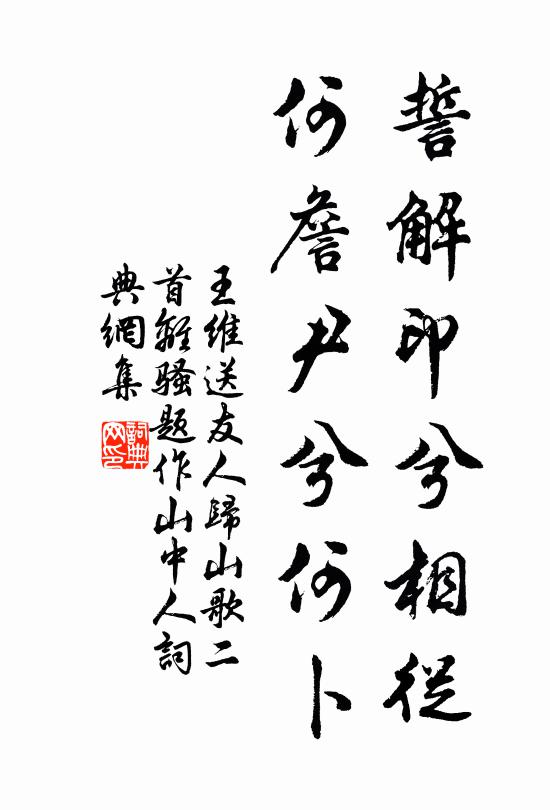 誓解印兮相從
何詹尹兮何卜
王維送友人歸山歌二
首離騷題作山中人詞
典網集
詞典網印